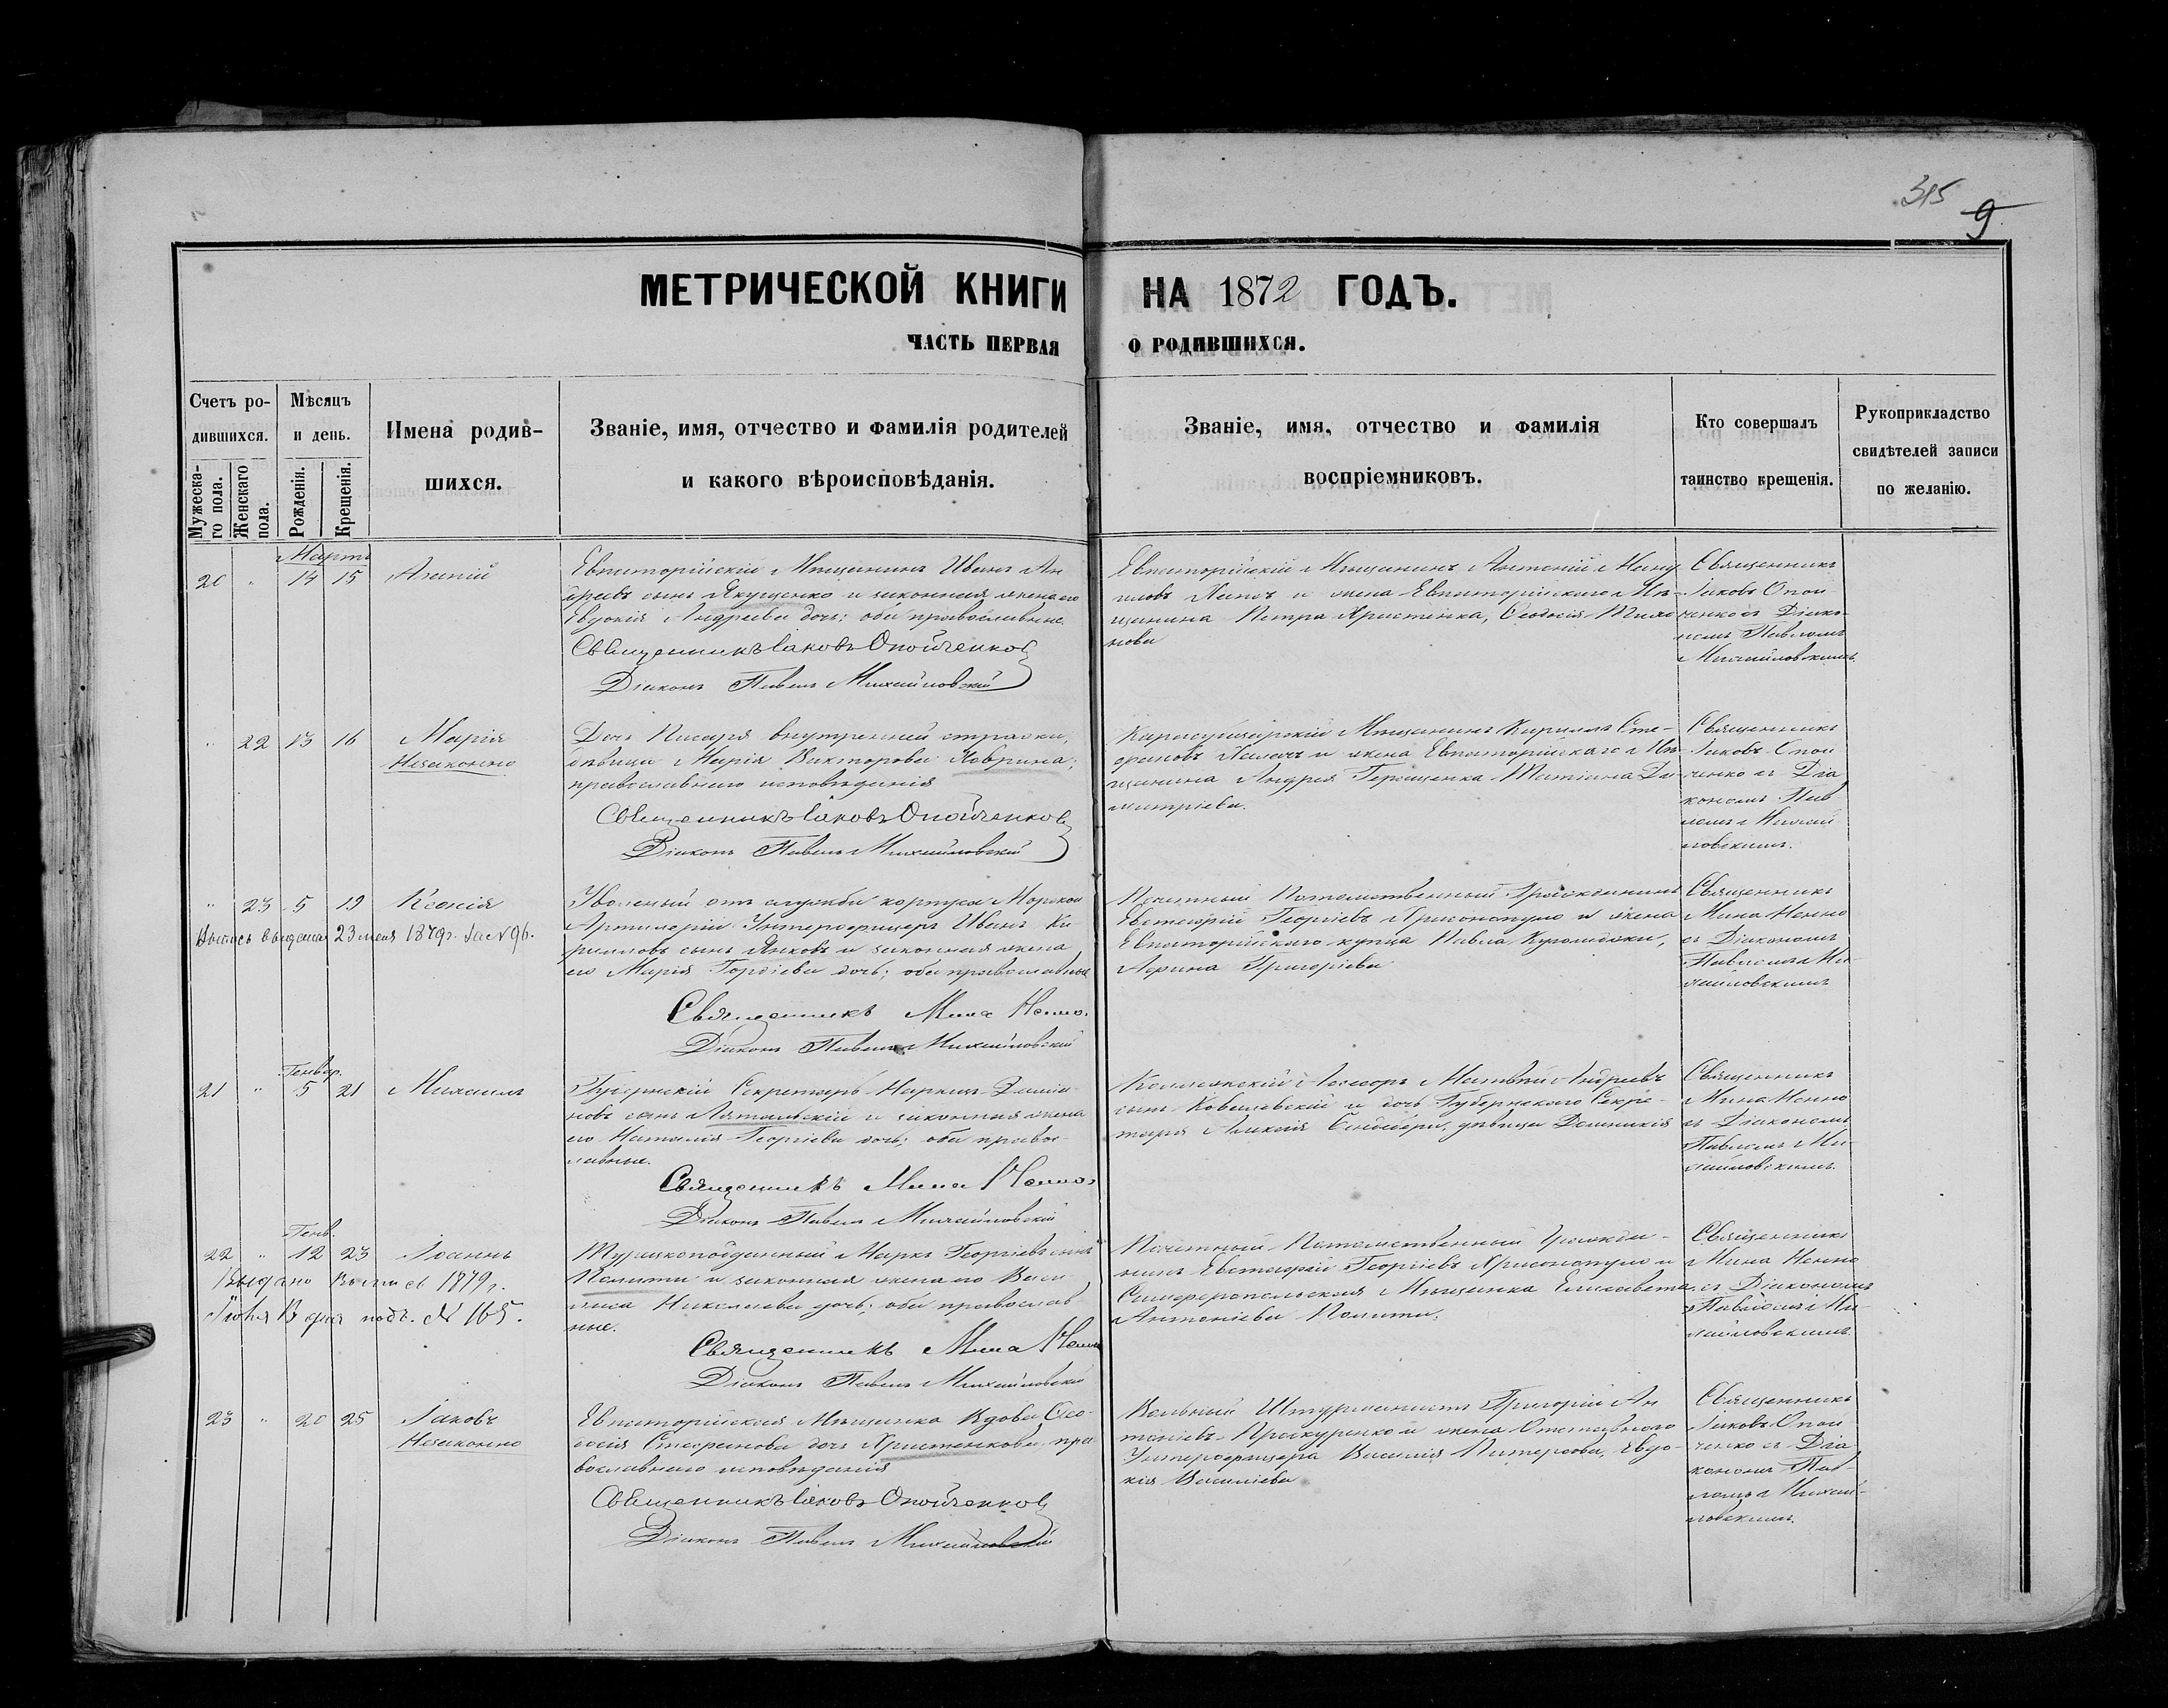 315
9
МЕТРИЧЕСКОЙ КНИГИ НА 1872 ГОДЪ.
ЧАСТЬ ПЕРВАЯ О РОДИВШИХСЯ.
Счетъ ро-
дившихся.
Мужеска-
го пола.
Женскаго
пола.
Мѣсяцъ
и день.
Рожденія.
Крещенія.
Имена родив-
шихся.
Званіе, имя, отчество и фамилія родителей
и какого вѣроисповѣданія.
Званіе, имя, отчество и фамилія
воспріемниковъ.
Кто совершалъ
таинство крещенія.
Рукоприкладство
свидѣтелей записи
по желанію.
Мартъ
20 " 14 15
Евпаторійскій Мѣщанинъ Иванъ Ан
дреевъ сынъ Якущенко и законная жена его
Евдокія Андреева дочь; оба православные.
Священникъ Іаковъ Опойченков
Діаконъ Павелъ Михайловскій
Евпаторійскій Мѣщанинъ Антоній
и жена Евпаторійскаго Мѣ-
щанина Петра Христенка, Ѳеодосія Тихо
нова
Священникъ
Іаковъ Опой
ченко съ Діако-
номъ Павломъ
Михайловскимъ.
" 22 13 16 Марія
Незаконно
Дочь Писаря внутренней стражи,
дѣвица Марія Викторова Лаврина;
православнаго исповѣданія
Священникъ Іаковъ Опойченков
Діаконъ Павелъ Михайловскій
Карасубазарскій Мѣщанинъ Кириллъ Сте-
фановъ и жена Евпаторійскаго Мѣ-
щанина Андрея Геращенка Татіана Ди-
митріева.
Священникъ
Іаковъ Опой
ченко съ Діа
кономъ Пав
ломъ Михай
ловскимъ.
" 23 5 19 Ксенія
Выпись выдана 23 1879г. за № 96.
Уволеный отъ службы корпуса Морской
Артилеріи Унтерофицеръ Иванъ Ки
рилловъ сынъ Янковъ и законная жена
его Марія Гордіева дочь; оба православные
Священникъ Мина Ненно.
Діаконъ Павелъ Михайловскій
Почетный Потомственный Гражданинъ
Евстафій Георгіевъ Хрисопуло и жена
Евпаторійскаго купца Павла
Григоріева
Священникъ
Мина Ненно
съ Діакономъ
Павломъ Ми-
хайловскимъ
Генвар.
21 " 5 21 Михаилъ
Губернскій Секретарь
новъ сынъ и законная жена
его Наталія Георгіева дочь; оба право-
славные.
Священникъ Мина Ненно
Діаконъ Павелъ Михайловскій
Коллежскій Ассесоръ Матвѣй Андреевъ
сынъ Ковалевскій и дочь Губернскаго Секре-
таря Алексія дѣвица Домникія
Священникъ
Мина Ненно
съ Діакономъ
Павломъ Ми-
хайловскимъ.
Генв.
22 " 12 23 Іоаннъ
Выдано выпись 1879г.
Іюня дня подъ № 165.
Турецкоподданный Маркъ Георгіевъ сынъ
Полити и законная жена его Васи
лиса Николаева дочь; оба православ
ные.
Священникъ Мина Ненно
Діаконъ Павелъ Михайловскій
Почетный Потомственный Гражда-
нинъ Евстафій Георгіевъ Хрисопуло и
Симферопольская Мѣщанка Елисавета
Антоніева Полити.
Священникъ
Мина Ненно
съ Діакономъ
Павломъ Ми-
хайловскимъ.
23 " 20 25 Іаковъ
Незаконно
Евпаторійская Мѣщанка Вдова Ѳео-
досія Стефанова дочь Христенкова, пра
вославнаго исповѣданія
Священникъ Іаковъ Опойченков
Діаконъ Павелъ Михайловскій
Вольный Штурманъ Григорій Ан
тоніевъ Проскуренко и жена Отставного
Унтерофицера Василія Питерсова, Евдо-
кія Василіева
Священникъ
Іаковъ Опой
ченко съ Діа
кономъ Пав-
ломъ Михай-
ловскимъ.